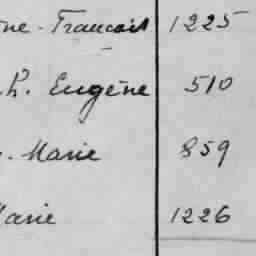 ne-Francois 1225
h. Eugène 510
. Marie 859
Marie 1226